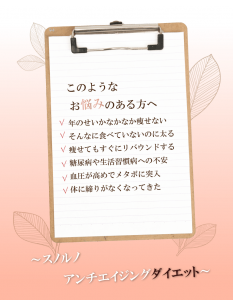 このような
お悩みのある方へ
年のせいかなかなか痩せない
そんなに食べていないのに太る
痩せてもすぐにリバウンドする
糖尿病や生活習慣病への不安
血圧が高めでメタボに突入
体に締りがなくなってきた
～スノルノ
アンチエイジングダイエット～